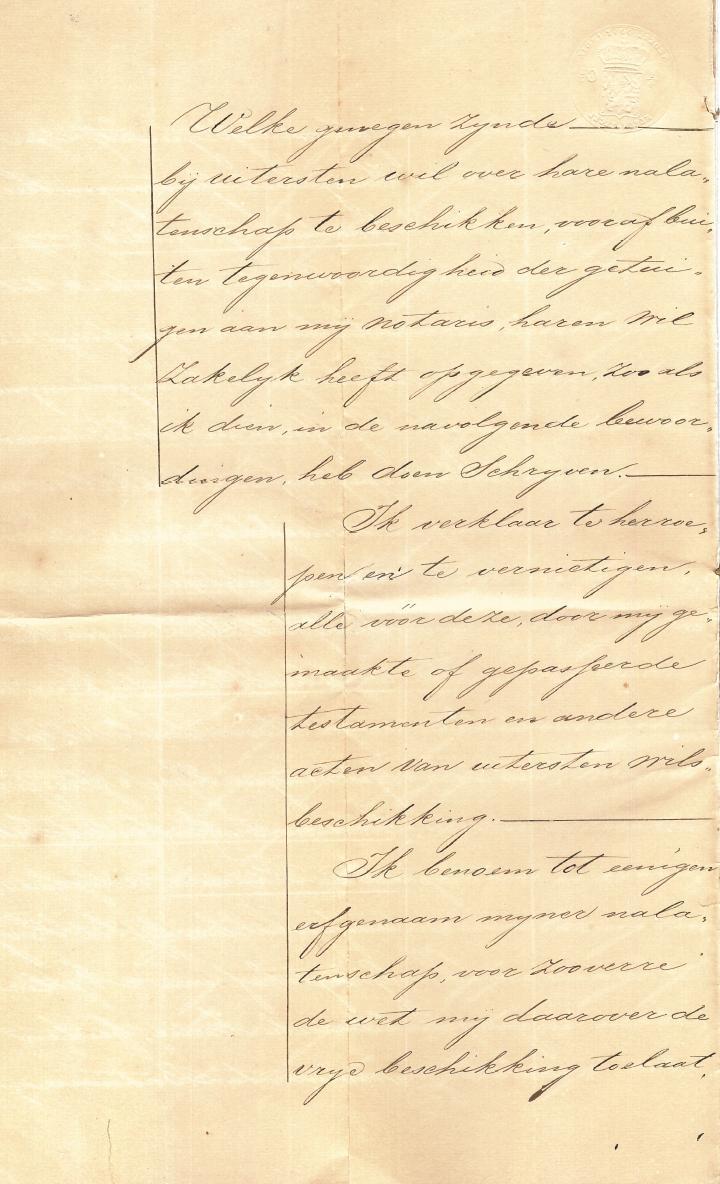 Welke genegen zynde
bij uitersten wil over hare nala„
tenschap te beschikken, vooraf bui„
ten tegenwoordigheid der getui„
gen aan mij notaris, haren wil
Zakelyk heeft opgegeven, zoo als
ik dien, in de navolgende bewoor„
dingen, heb doen Schryven.
Ik verklaar te herroe„
pen en te vernietigen,
alle vóór deze, door mij ge„
maakte of gepasseerde
testamenten en andere
acten van uitersten wils„
beschikking.
Ik benoem tot eenigen
erfgenaam myner nala„
tenschap, voor zooverre
de wet mij daarover de
vrye beschikking toelaat,